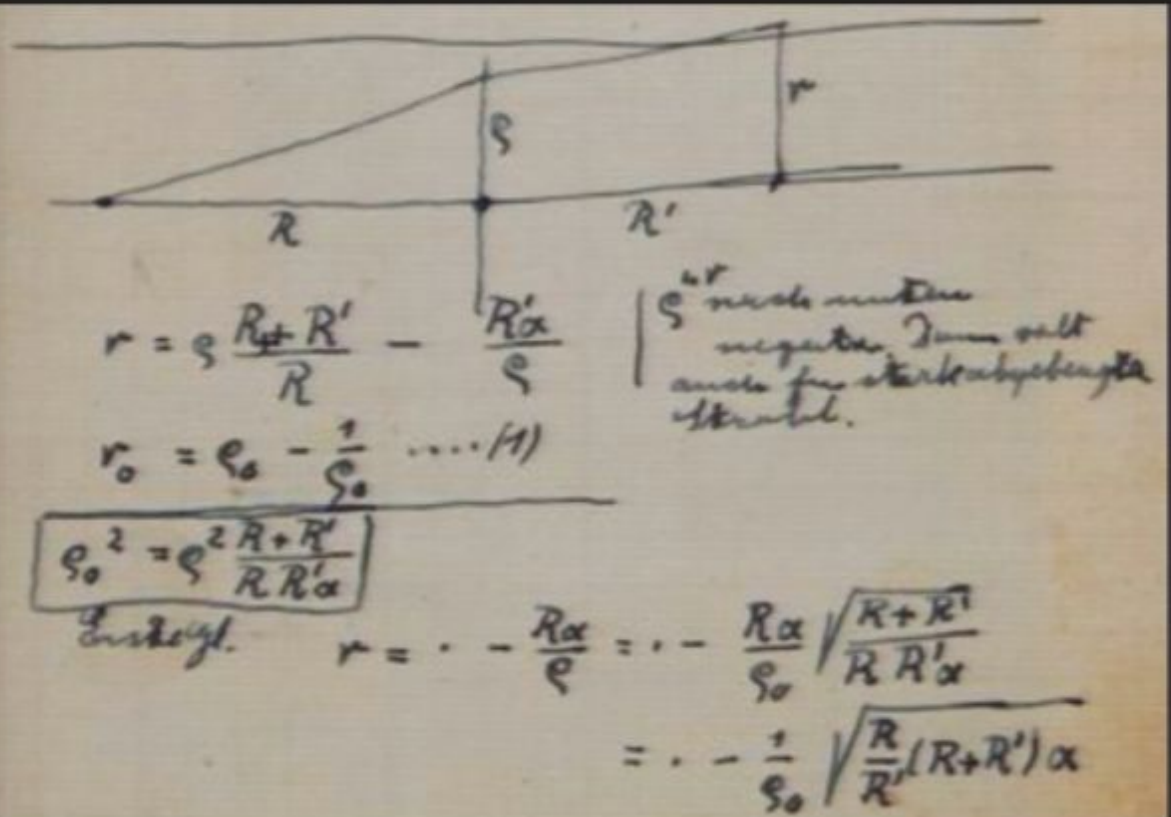 ρ
r
R
R'
r = ρ (R + R')/R − R'α/ρ
ρ u r nach unten
negativ. Dann gilt
auch für stark abgebeugten
Strahl.
r₀ = ρ₀ − 1/ρ₀ ....(1)
ρ₀² = ρ² (R + R')/(R R'α)
r = · − Rα/ρ = · − Rα/ρ₀ √((R + R')/(R R'α))
= · − 1/ρ₀ √(R/R' (R+R') α)